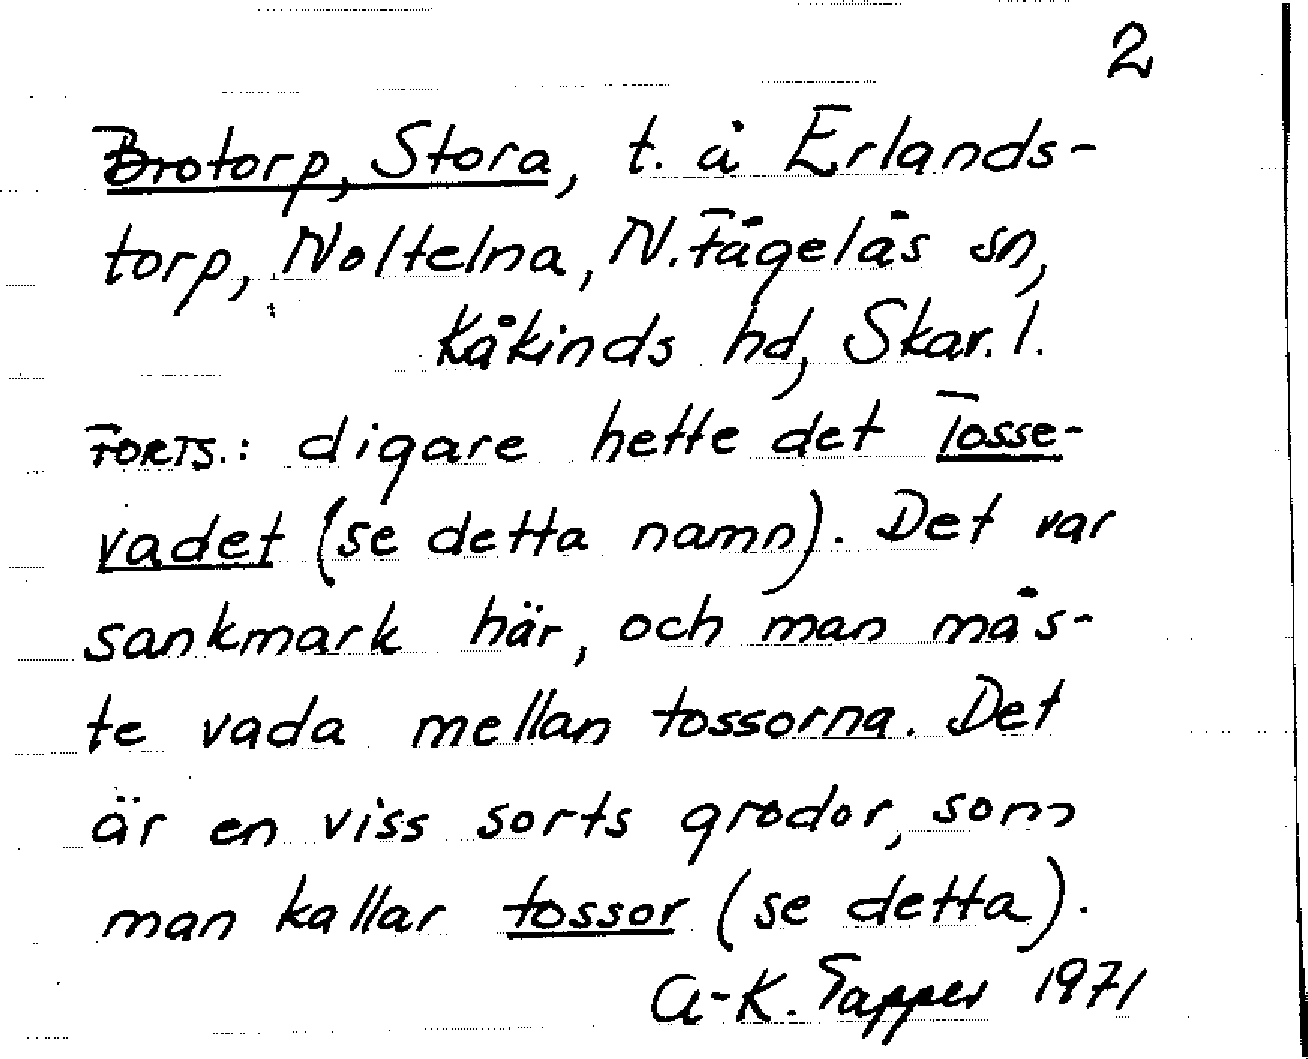 2
Brotorp, Stora, t. å Erlands-
torp, Noltelna, N. Fågelås sn,
Kåkinds hd, Skar. l.
FORTS.: digare hette det Tosse-
vadet (se detta namn). Det var
sankmark här, och man mås-
te vada mellan tossorna. Det
är en viss sorts grodor, som
man kallar tossor (se detta).
A-K. Tapper 1971